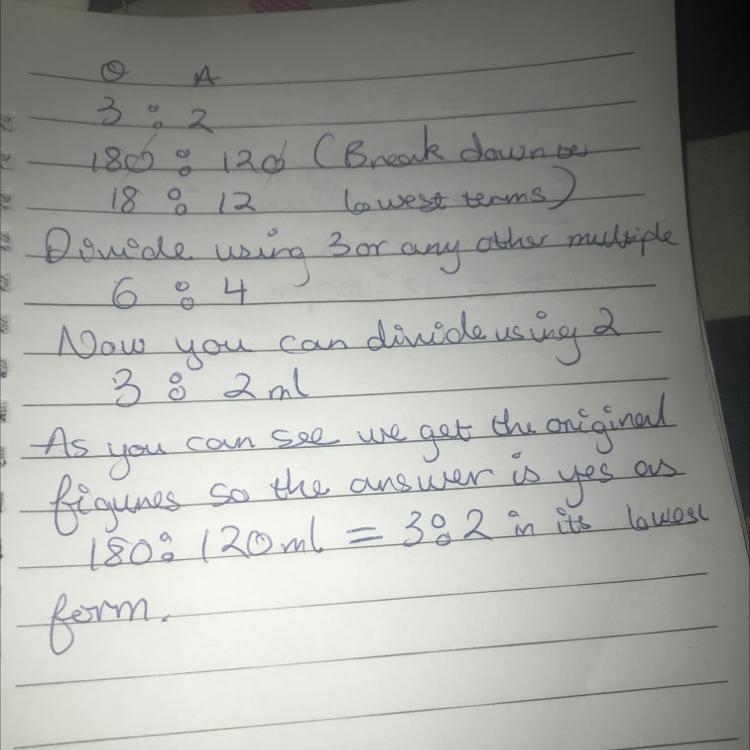 O A
3 : 2
180 : 120 (Break down to
18 : 12 lowest terms)
Divide using 3 or any other multiple
6 : 4
Now you can divide using 2
3 : 2 ml
As you can see we get the original
figures so the answer is yes as
180 : 120 ml = 3 : 2 in its lowest
form.